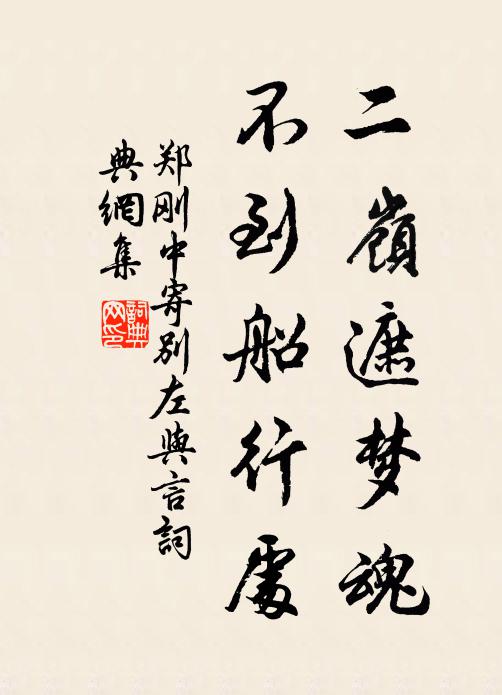 二嶺遮梦魂
不到船行處
郑刚中寄别左與言詞
典網集
詞典網印